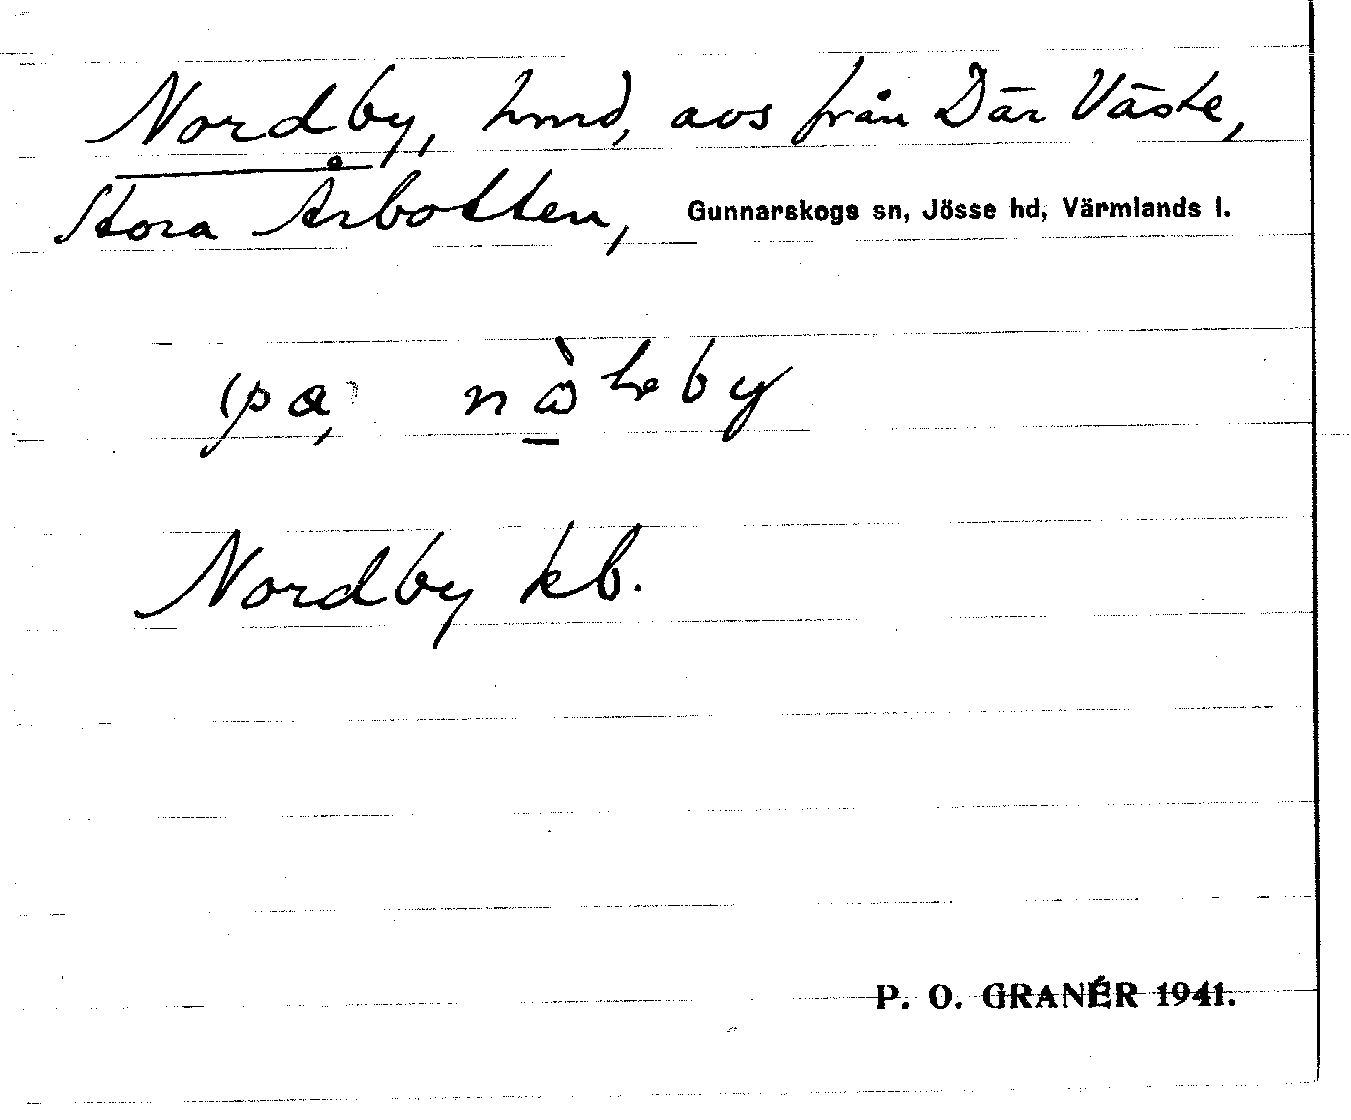 Nordby, hmd, avs från Där Väste,
Stora Årbotten, Gunnarskogs sn, Jösse hd, Värmlands l.
(på)
Nordby kb.
P. O. GRANÉR 1941.